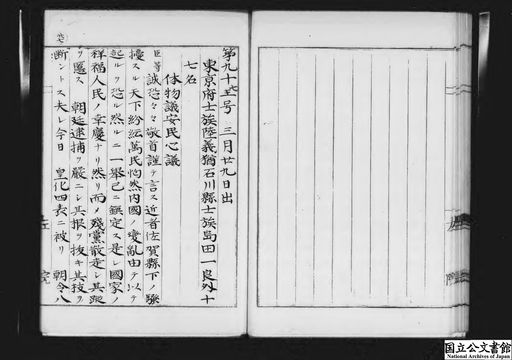 第九十五号 三月廿九日出
東京府士族陸義猶石川縣士族島田一良外十
七名
休物議安民心議
臣等誠恐々々敬首謹テ言ス近者佐賀縣下ノ騒
擾スル天下紛紜萬民恟然内國ノ変亂由テ以テ
起ルヲ恐ル然ルニ一舉已ニ鎮定ス是レ國家ノ
祥福人民ノ幸慶ナリ然リ而〆殘黨散走シ其蹤
ヲ匿ス 朝廷逮捕ヲ嚴ニシ其根ヲ抜キ其枝ヲ
断ントス夫レ今日 皇化四表ニ被リ 朝令八
国立公文書館
National Archives of Japan